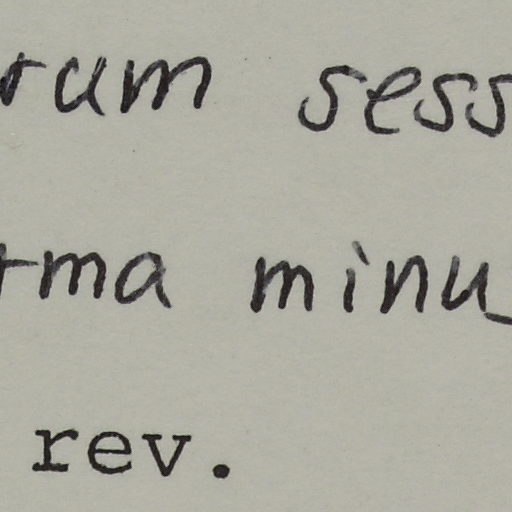 rum sess
rma minu
rev.